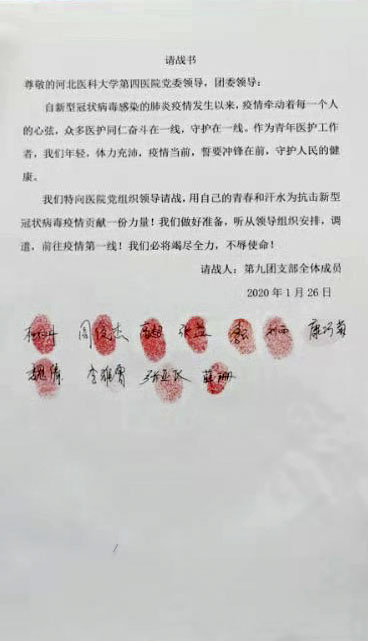 请战书
尊敬的河北医科大学第四医院党委领导，团委领导：
自新型冠状病毒感染的肺炎疫情发生以来，疫情牵动着每一个人
的心弦，众多医护同仁奋斗在一线，守护在一线。作为青年医护工作
者，我们年轻，体力充沛，疫情当前，誓要冲锋在前，守护人民的健
康。
我们特向医院党组织领导请战，用自己的青春和汗水为抗击新型
冠状病毒疫情贡献一份力量！我们做好准备，听从领导组织安排，调
遣，前往疫情第一线！我们必将竭尽全力，不辱使命！
请战人：第九团支部全体成员
2020 年 1 月 26 日